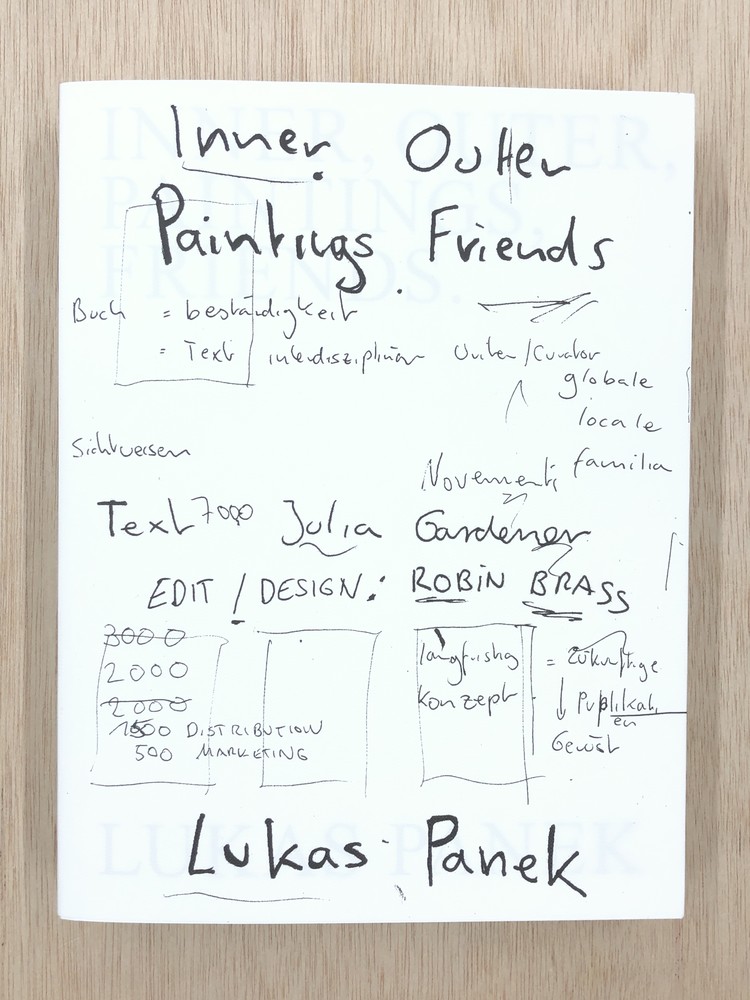 INNER, OUTER,
PAINTINGS,
FRIENDS.
Inner Outter
Paintings. Friends
Buch = beständigkeit
= Text interdisziplinär Writer/Curator
globale
locale
familia
Sichtweisen
Text 7000 Julia Gardener
EDIT / DESIGN: ROBIN BRASS
3000
2000
2000
1500 DISTRIBUTION
500 MARKETING
langfristig = Zukünftige
Konzept Publikat.
en
Gerüst
LUKAS PANEK
Lukas Panek